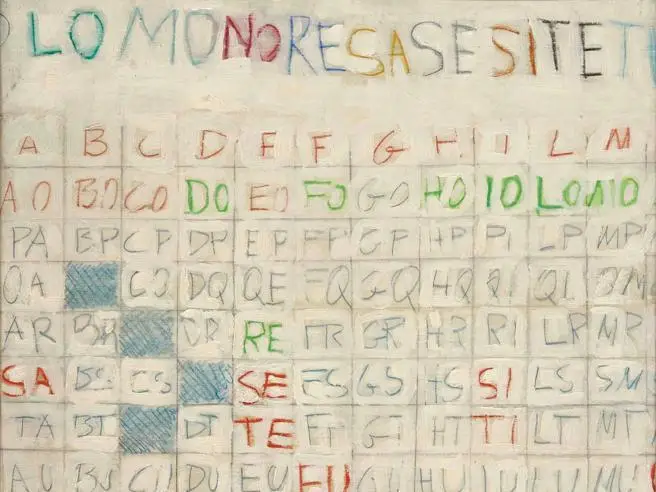 LO MO NO RE SA SE SI TE
A B C D E F G H I L M
AO BO CO DO EO FO GO HO IO LO MO
PA BP CP DP EP FP GP HP PI LP MP
QA CQ DQ QE FQ GQ HQ QI QL
AR BR RE FR GR HR RI LR MR
SA BS CS SE FS GS HS SI LS SM
TA BT DT TE FT GT HT TI LT MT
AU BU CU DU EU FU GU HU IU LU MU